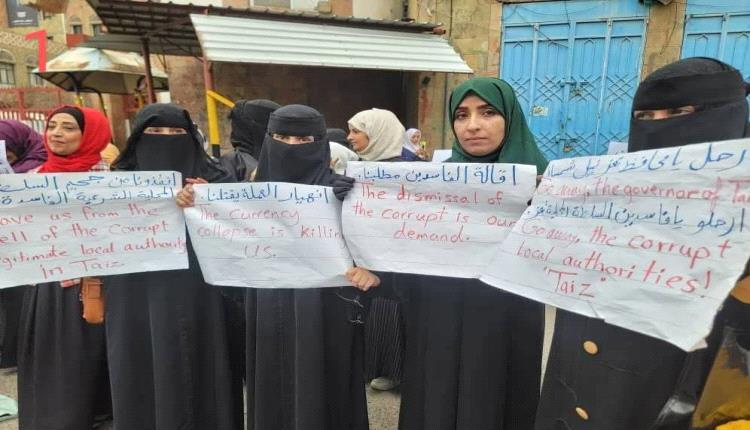 1
انقذونا من جحيم السلطة
المحلية الشرعية الفاسدة
ave us from the
ell of the Corrupt
gitimate local authority
in Taiz.
انهيار العملة يقتلنا
The currency
collapse is killin
us.
اقالة الفاسدين مطلبنا.
The dismissal of
the corrupt is our
demand.
ارحل يا محافظ تعز نبيل
Go away, the governor of Tai
ارحلو يا فاسدين السلطة المحلية
Go away, the corrupt
local authorities!
"Taiz"